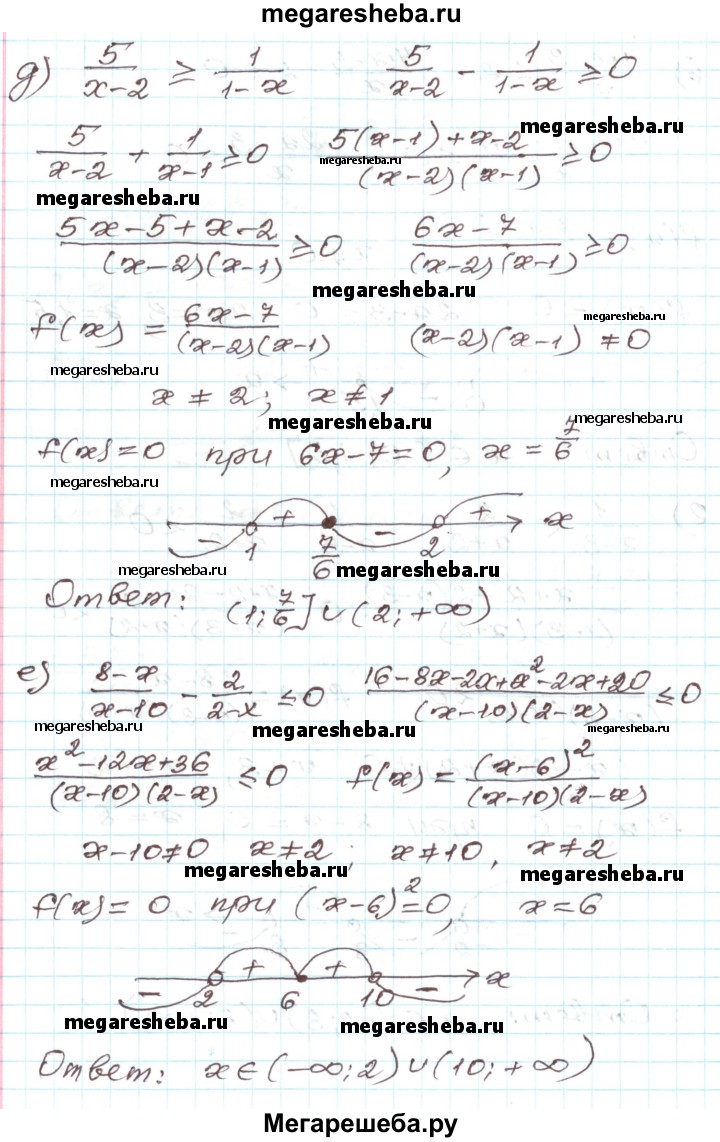 megaresheba.ru
д) 5/(x-2) ≥ 1/(1-x)   5/(x-2) - 1/(1-x) ≥ 0
megaresheba.ru
5/(x-2) + 1/(x-1) ≥ 0   (5(x-1)+x-2)/((x-2)(x-1)) ≥ 0
megaresheba.ru
megaresheba.ru
(5x-5+x-2)/((x-2)(x-1)) ≥ 0   (6x-7)/((x-2)(x-1)) ≥ 0
megaresheba.ru
megaresheba.ru
f(x) = (6x-7)/((x-2)(x-1))   (x-2)(x-1) ≠ 0
megaresheba.ru
x ≠ 2; x ≠ 1
megaresheba.ru
megaresheba.ru
f(x)=0 при 6x-7=0, x = 7/6
megaresheba.ru
- + - + x
1 7/6 2
megaresheba.ru
megaresheba.ru
Ответ: (1; 7/6] ∪ (2; +∞)
megaresheba.ru
е) (8-x)/(x-10) - 2/(2-x) ≤ 0   (16-8x-2x+x²-2x+20)/((x-10)(2-x)) ≤ 0
megaresheba.ru
megaresheba.ru
megaresheba.ru
(x²-12x+36)/((x-10)(2-x)) ≤ 0   f(x) = (x-6)²/((x-10)(2-x))
x-10≠0 x≠2; x≠10, x≠2
megaresheba.ru
megaresheba.ru
f(x)= 0 при (x-6)²=0, x=6
- + + - x
2 6 10
megaresheba.ru
megaresheba.ru
Ответ: x∈(-∞;2)∪(10;+∞)
Мегарешеба.ру